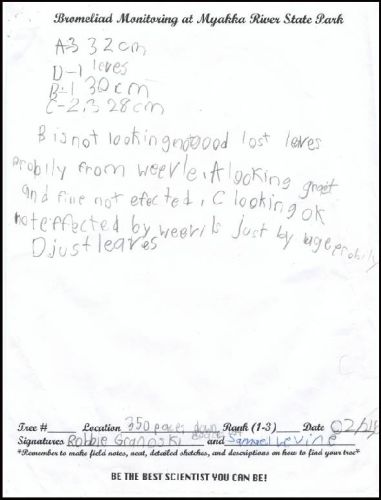 Bromeliad Monitoring at Myakka River State Park
A-3 32cm
D-1 leves
B-1 30cm
C-2,3 28cm
B is not looking good lost leves
probily from weevle. A looking great
and fine not efected, C looking ok
not effected by weevils just by age probily
D just leaves
Tree #____ Location 350 paces down Rank (1-3)____ Date 02/
Signatures Robbie Granoski and Samuel Levine
*Remember to make field notes, neat, detailed sketches, and descriptions on how to find your tree*
BE THE BEST SCIENTIST YOU CAN BE!